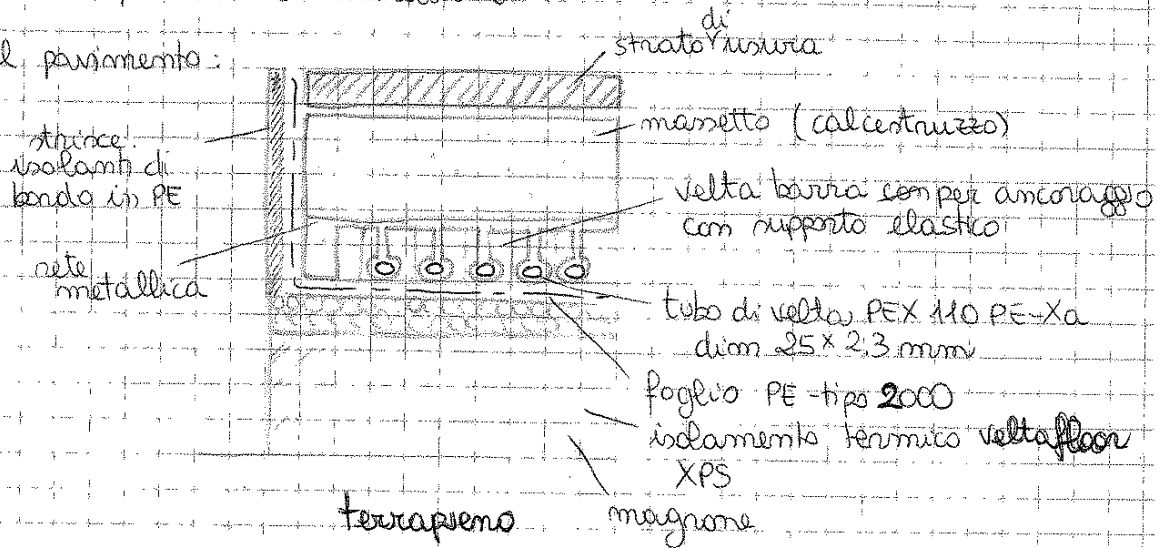 l pavimento:
strato di usura
massetto (calcestruzzo)
strisce
isolanti di
bordo in PE
velta barra con per ancoraggio
con supporto elastico
rete
metallica
tubo di velta PEX 110 PE-Xa
dim 25 x 2,3 mm
foglio PE-tipo 2000
isolamento termico veltafloor
XPS
terrapieno
magrone